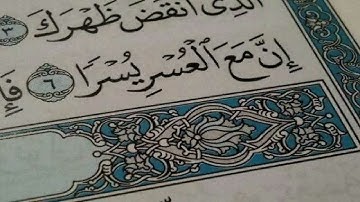 الَّذِىٓ أَنقَضَ ظَهْرَكَ ٣
إِنَّ مَعَ ٱلْعُسْرِ يُسْرًا ٦ فَإِ